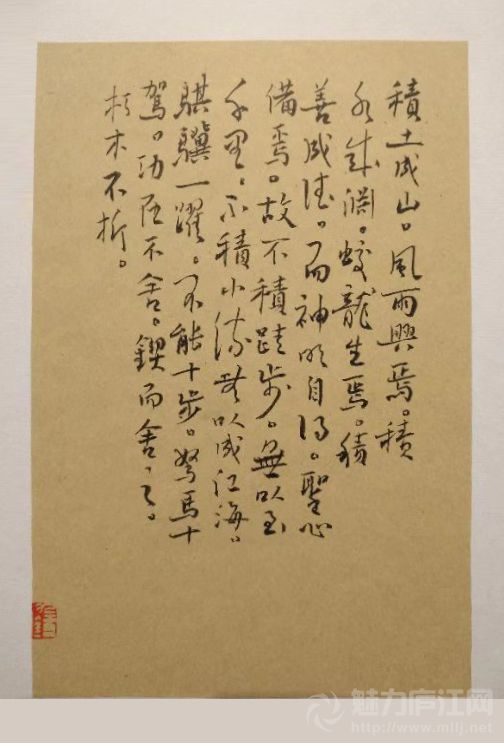 積土成山。風雨興焉。積
水成渊。蛟龍生焉。積
善成德。而神明自得。聖心
備焉。故不積跬步。無以至
千里、不積小流無以成江海。
騏驥一躍。不能十步。駑馬十
駕。功在不舍。鍥而舍之。
朽木不折。
魅力庐江网
http://www.mllj.net